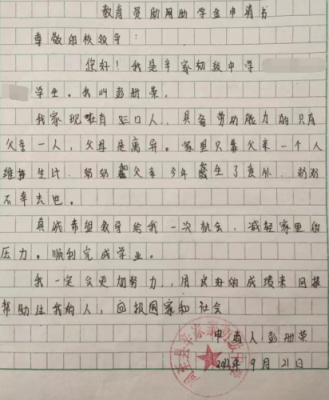 教育资助网助学金申请书
尊敬的校领导:
您好!我是半寨初级中学
学生。我叫彭册荣。
我家现有三口人,具备劳动能力的只有
父亲一人,父母是离异。家里只靠父亲一个人
维持生计,奶奶父亲今年发生了意外,奶奶
不幸去世。
真诚希望领导给我一次机会,减轻家里的
压力。顺利完成学业。
我一定会更加努力,用良好的成绩来回报
帮助过我的人,回报国家和社会
申请人:彭册荣
9月21日